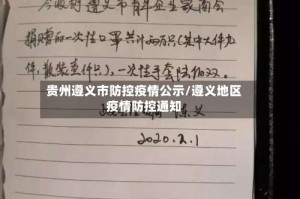 今收到遵义市青年企业家商会
捐赠的一次性口罩共计两万只(其中大件九
件,散装壹仟只),一次性手套
贵州遵义市防控疫情公示/遵义地区
疫情防控通知
2020.2.1